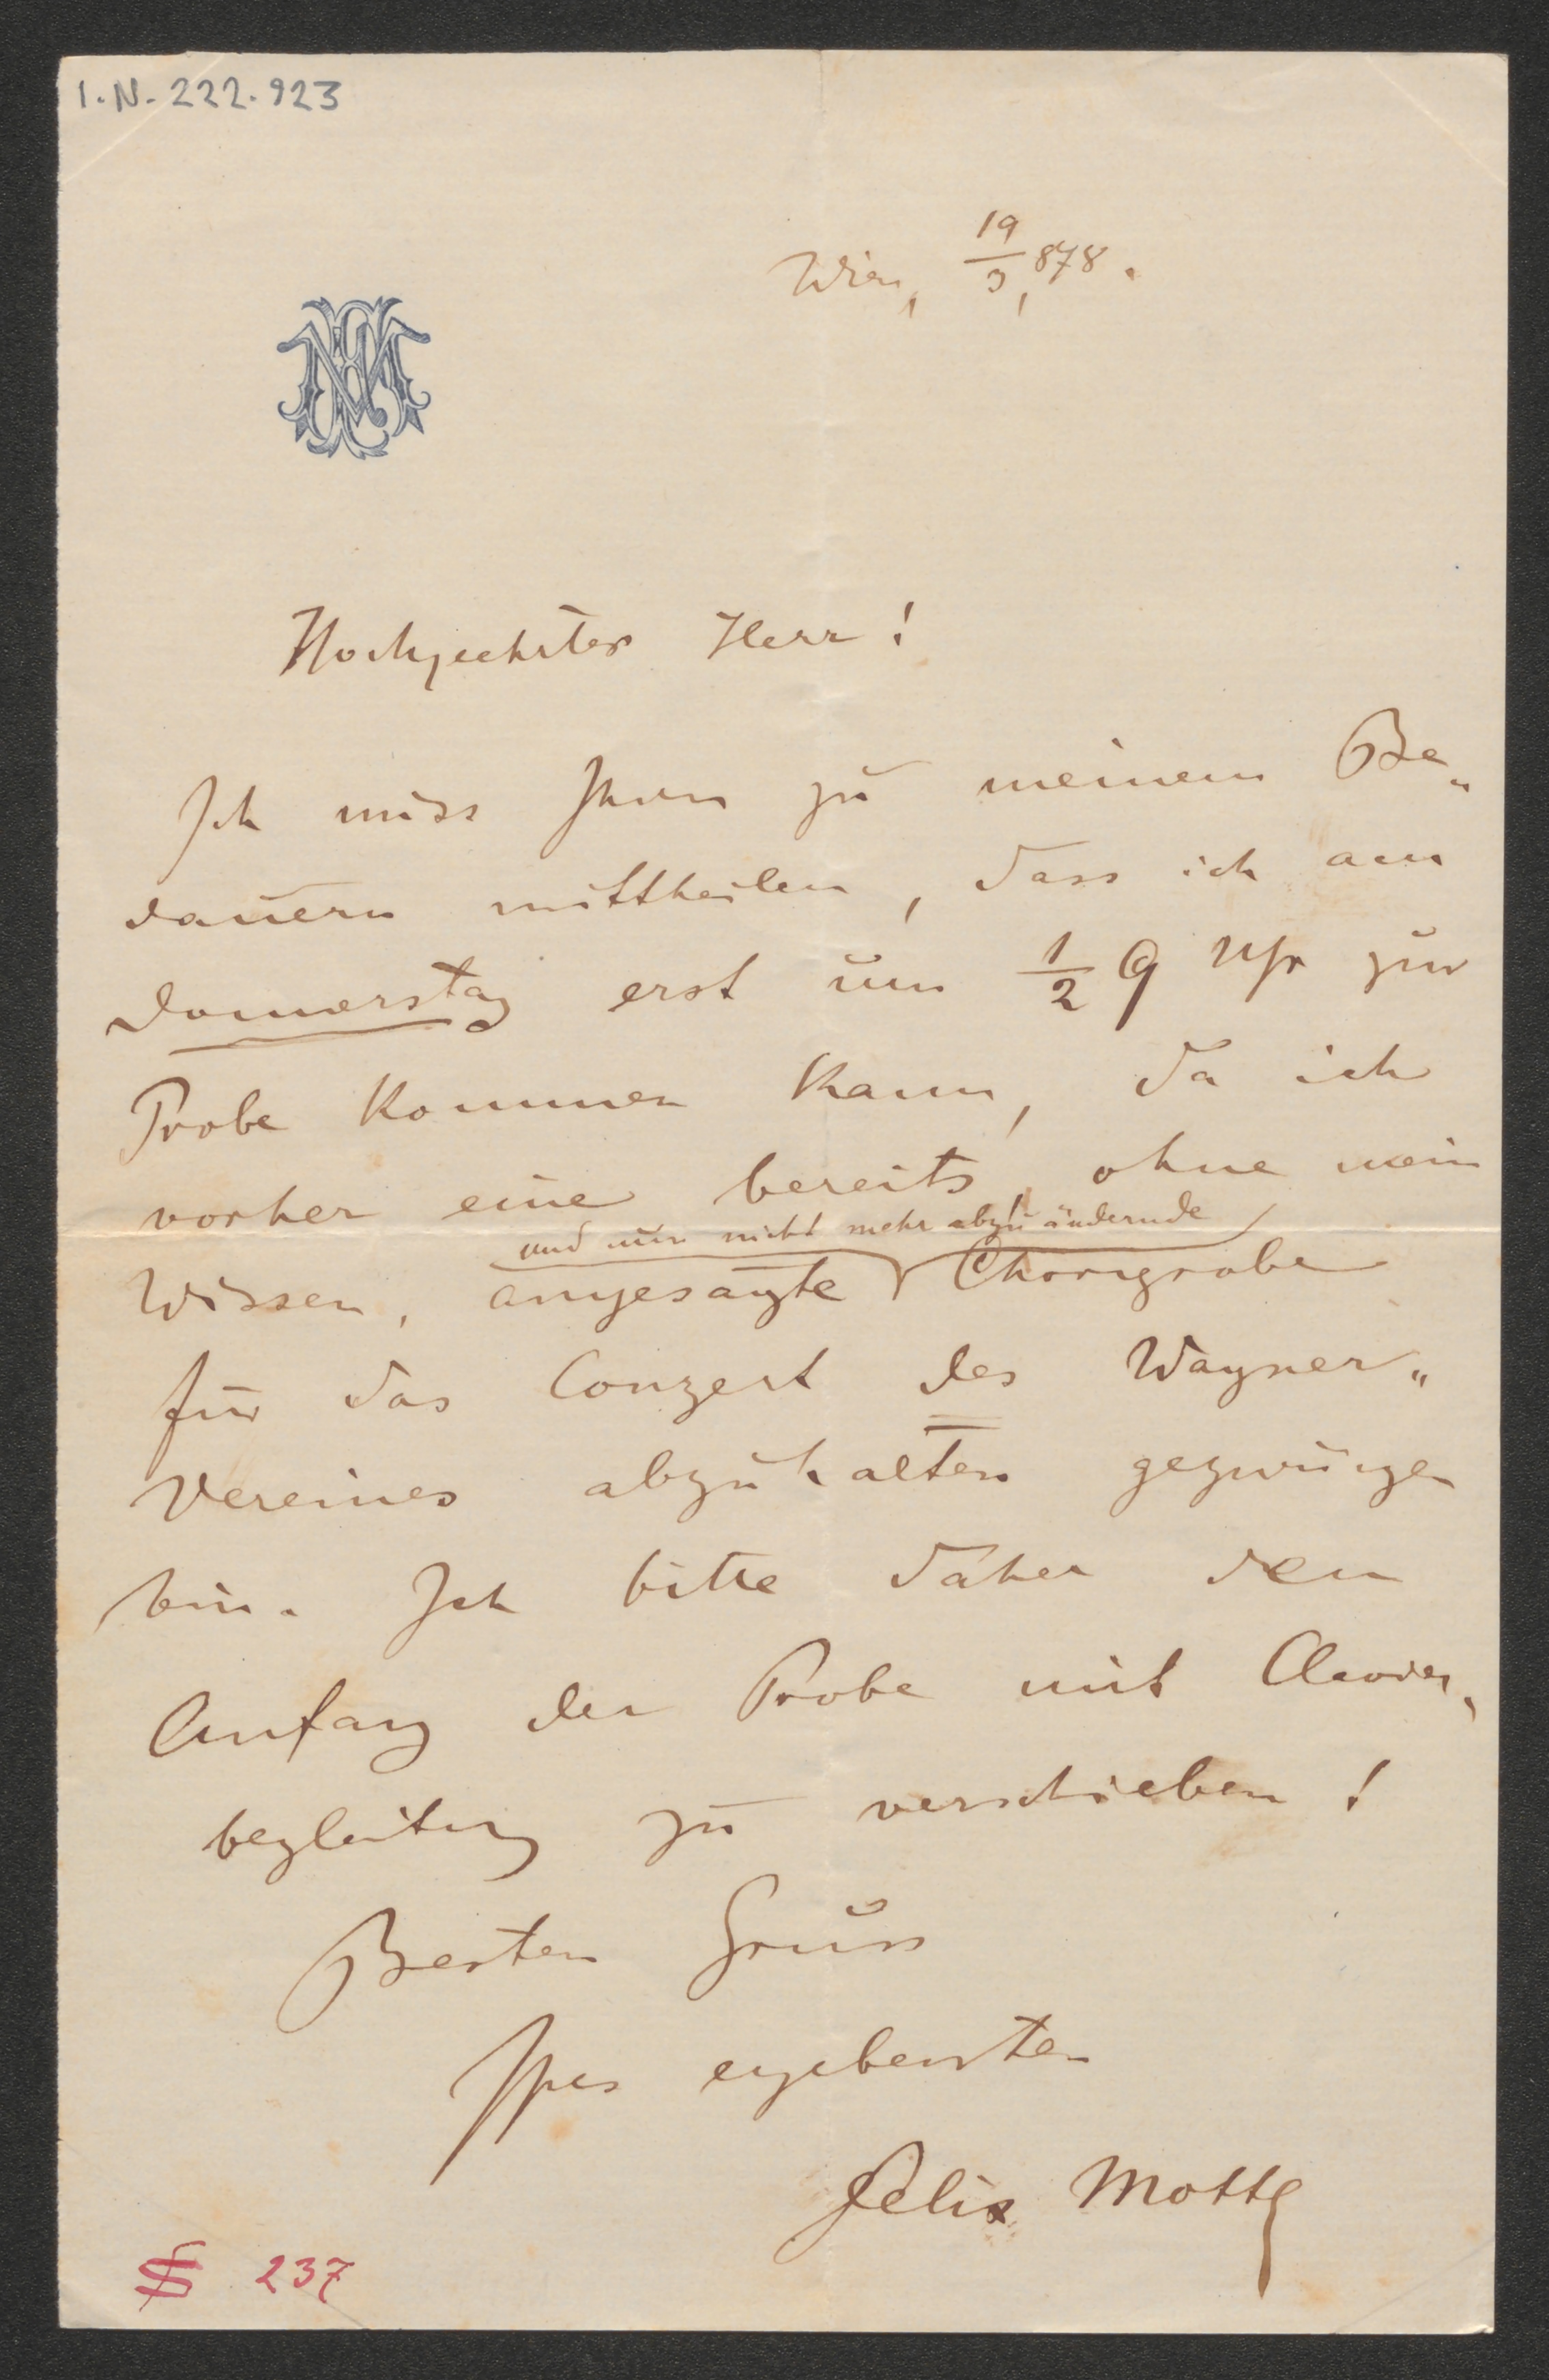 I.N. 222.923
Wien, 19/3, 878.
Hochgeehrter Herr!
Ich muss Ihnen zu meinem Be„
dauern mittheilen, dass ich am
Donnerstag erst um 1/2 9 Uhr zur
Probe kommen kann, da ich
vorher eine bereits, ohne mein
und nun nicht mehr abzuändernde
Wissen, angesagte Chorprobe
für das Conzert des Wagner„
Vereines abzuhalten gezwungen
bin. Ich bitte daher den
Anfang der Probe mit Clavier„
begleitung zu verschieben!
Besten Gruss
Ihres ergebensten
Felix Mottl
237